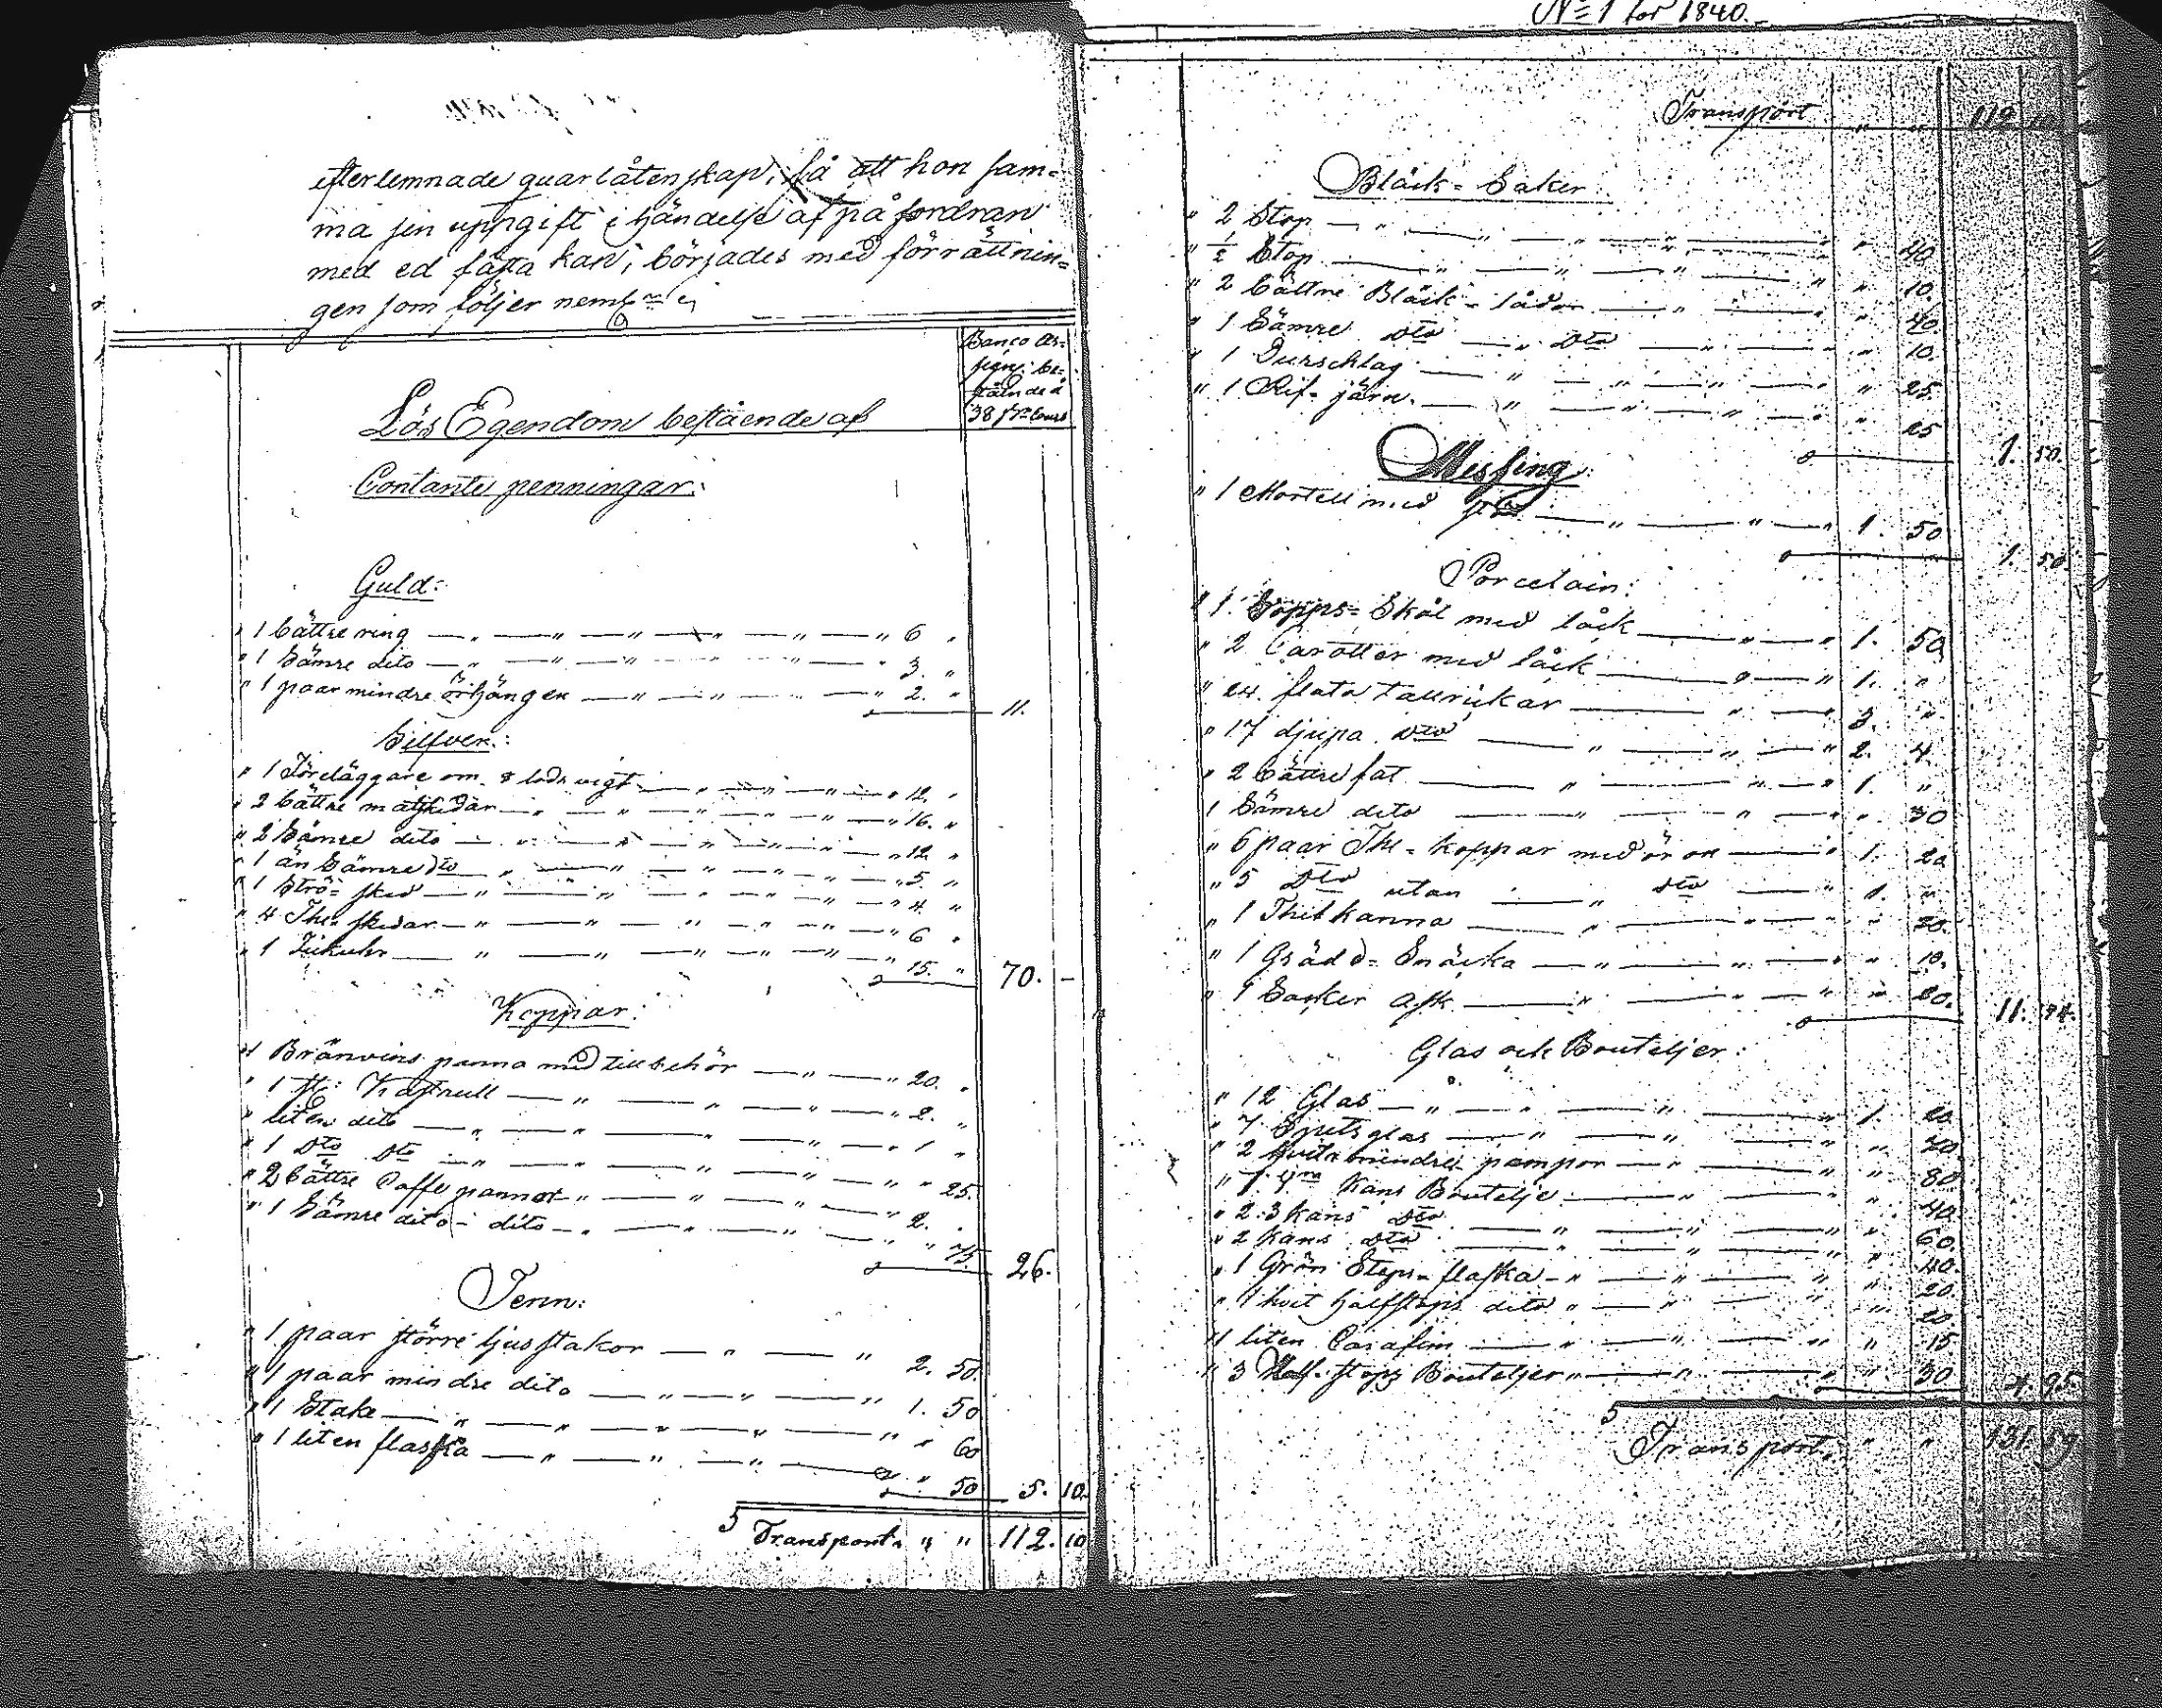 efterlemnade quarlåtenskap, så att hon sam-
ma sin uppgift i händelse af påfordran
med ed fästa kan, börjades med förrättnin-
gen som följer neml:n
Banco As-
sign: be-
38 s:r
Lös Egendom bestående af
Contante penningar:
Guld:
" 1 bättre ring — " — " 6 "
" 1 Sämre dito — " — " 3. "
" 1 paar mindre örhängen — " — " 2. "
11.
Silfver:
" 1 Föreläggare om 8 lods vigt — " — " 12. "
" 2 bättre matskedar — " — " 16. "
" 2 Sämre dito — " — " 12 "
" 1 än Sämre dto — " — " 5. "
" 1 Strö-sked — " — " 4. "
" 4 The-skedar — " — " 6 "
" 1 Fickuhr — " — " 15. "
70. —
Koppar:
" 1 Bränvins panna med tillbehör — " — " 20. "
" 1 st: Kastrull — " — " 2. "
" liten dito — " — " 1 "
" 1 Dto Dto — " — " " 25.
" 2 bättre Caffe pannor — " — " 2. "
" 1 Sämre dito - dito — " — " " 75.
26.
Tenn:
" 1 paar större ljusstakor — " — " 2. 50.
" 1 paar mindre dito — " — " 1. 50
" 1 Stake — " — " " 60
" 1 liten flaska — " — " " 50
5. 10.
Transport " " 112. 10
N:o 1 for 1840.
Transport " " 112 10
Bläck-Saker:
" 2 Stop — " — " " 40
" 1/2 Stop — " — " " 10.
" 2 bättre Bläck-lådor — " — " " 40.
" 1 Sämre Dto — " Dto — " " 10.
" 1 Durschlag — " — " " 25.
" 1 Rif-järn — " — " " 25
1. 50.
Messing:
" 1 Mortell med — " — " 1. 50
1. 50.
Porcelain:
" 1 Sopps-Skål med låck — " — " 1. 50
" 2 Carotter med låck — " — " 1. "
" 24. flata tallrickar — " — " 3. "
" 17 djupa Dto — " — " 2. 4.
" 2 bättre fat — " — " 1. "
1 Sämre dito — " — " " 30
" 6 paar The-koppar med öron — " 1. 20
" 5 Dto utan — " Dto — " 1. "
" 1 Thekanna — " — " " 20.
" 1 Grädd-Snäcka — " — " " 10.
" 1 Socker ask — " — " " 20.
11. 94.
Glas och Bouteljer:
" 12 Glas — " — " 1. 20
" 7 Spetsglas — " — " " 70
" 2 hvita mindre pompor — " — " " 80
" 1 Kans Boutelje — " — " " 40
" 2. 3 kans Dto — " — " " 60.
" 2 kans Dto — " — " " 40.
" 1 Grön Stops-flaska — " — " " 20
" 1 hvit halfstops dito " — " — " " 20
" 1 liten Carafin — " — " " 15
" 3 Half-stops Bouteljer " — " — " " 30
4. 95.
Transport " " 131. 59